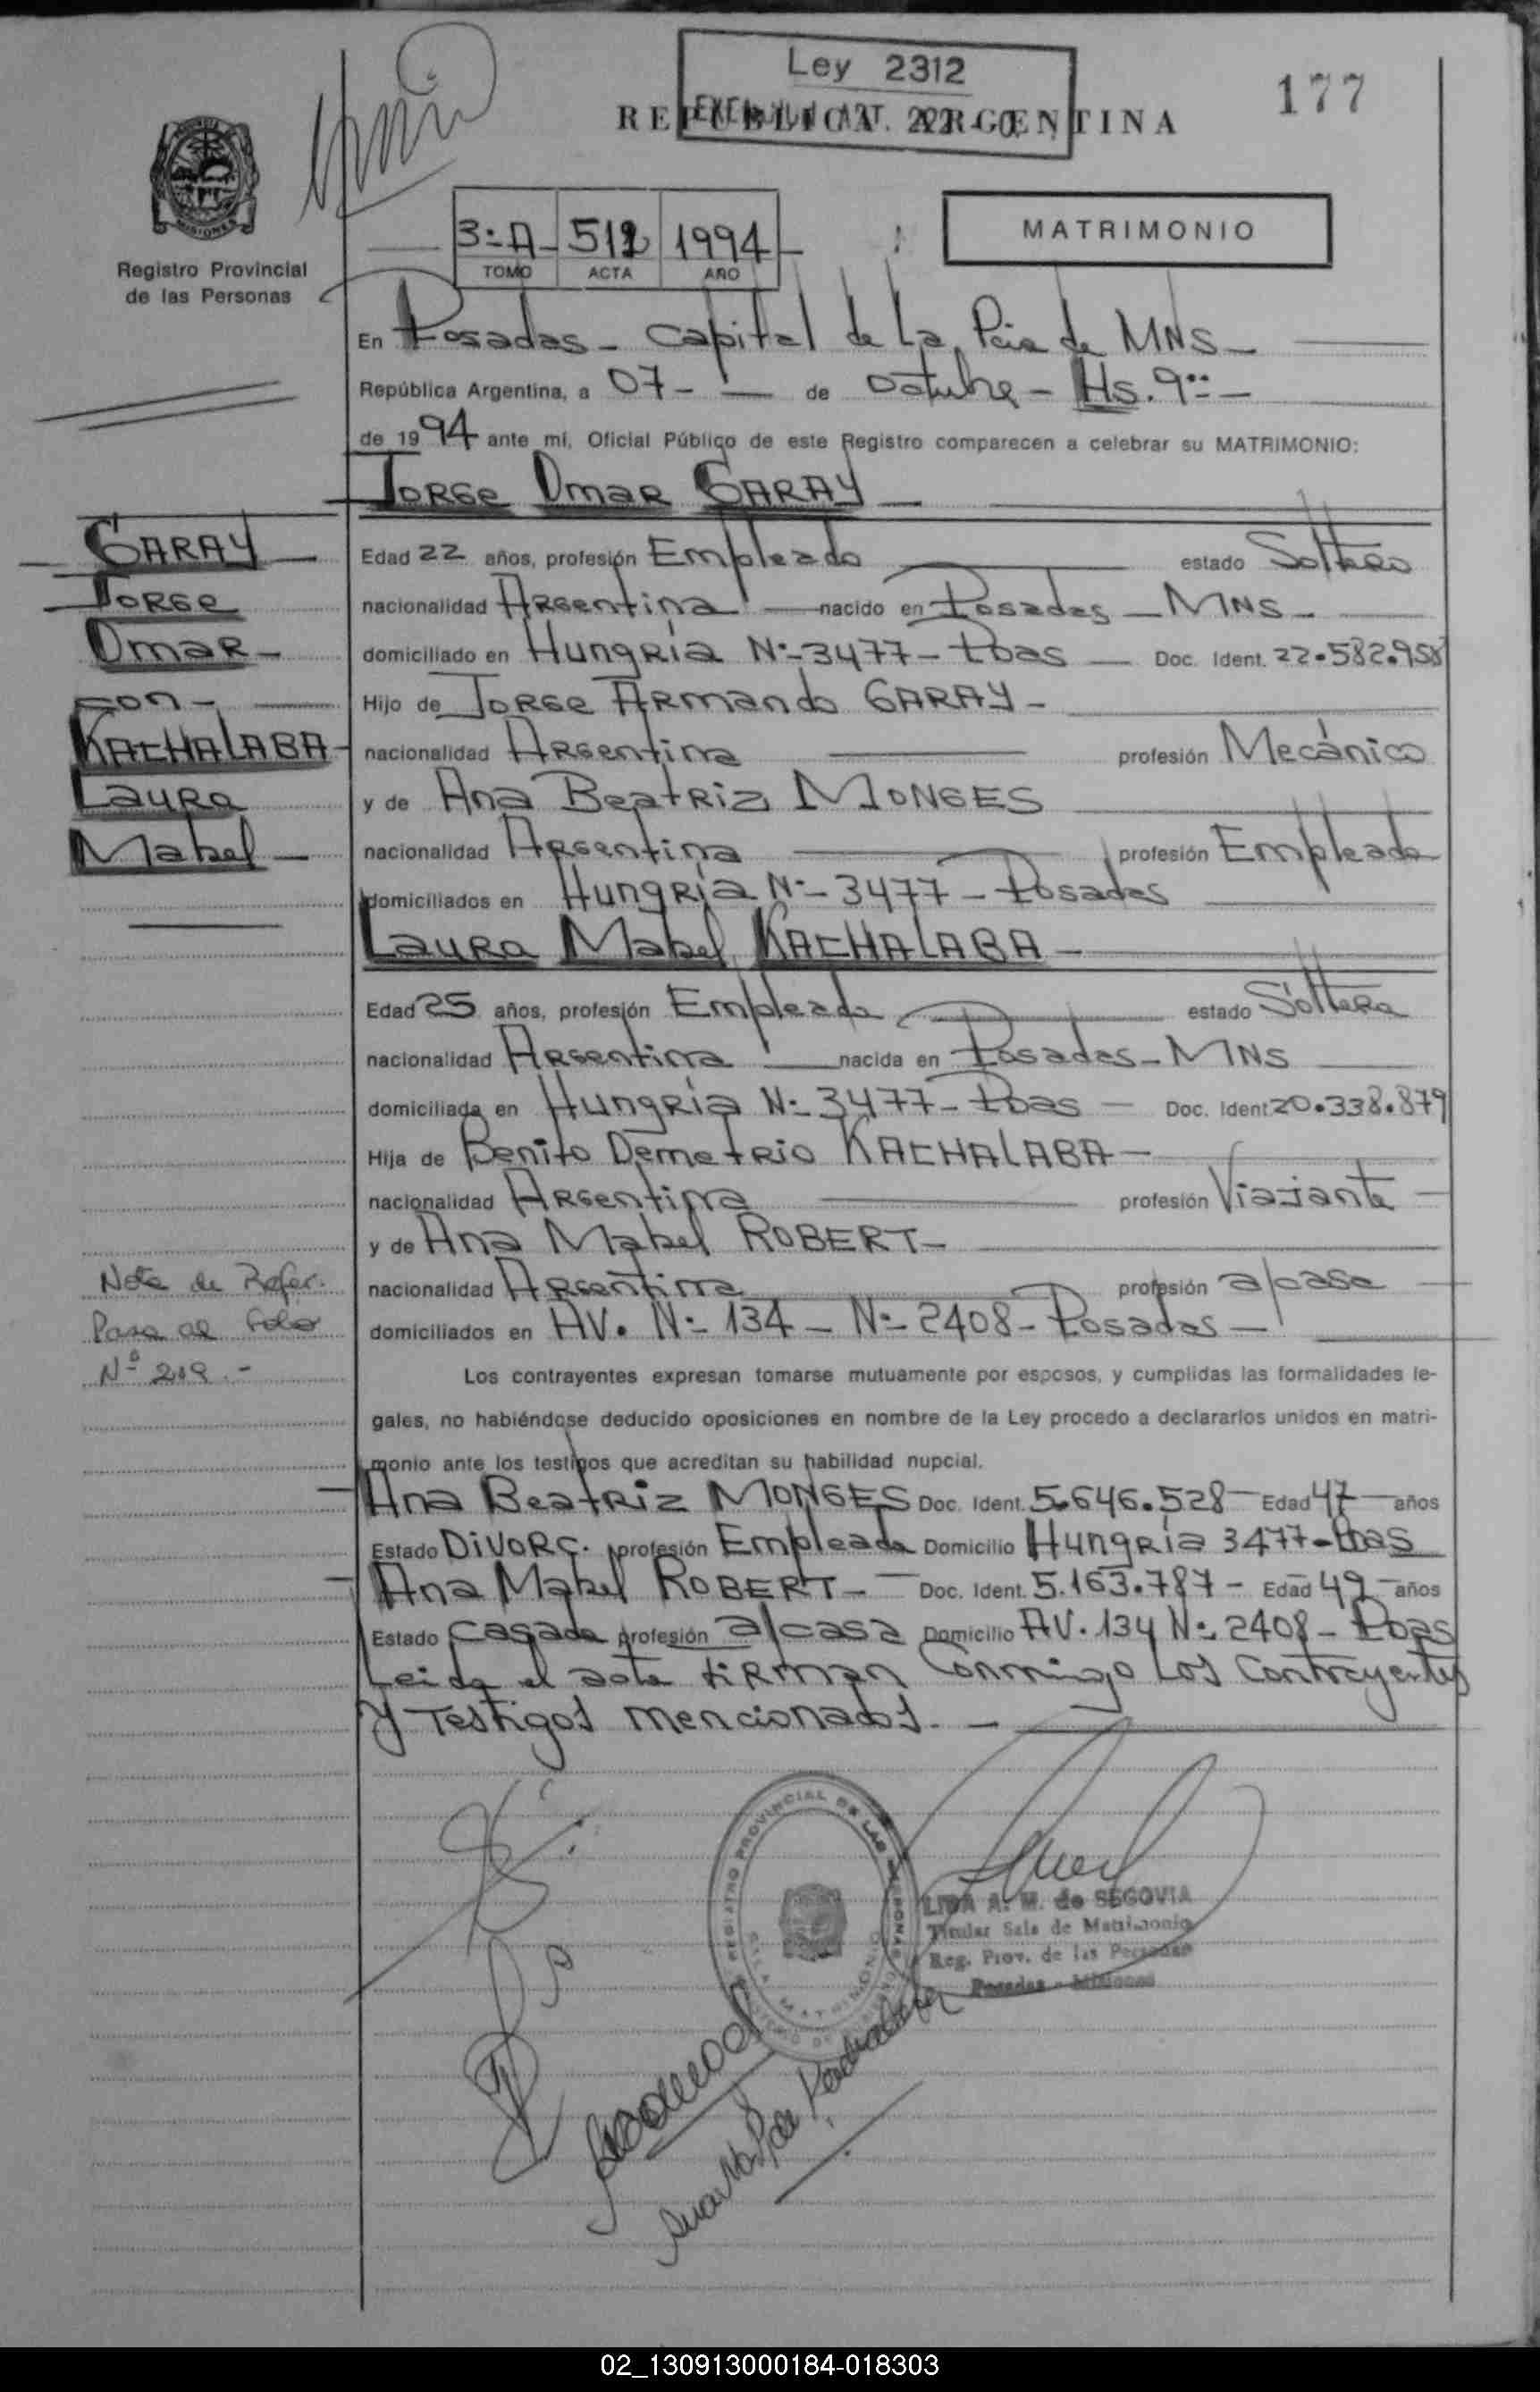 Ley 2312
177
REPUBLICA ARGENTINA
MISIONES
Registro Provincial
de las Personas
3:A- 512 1994
TOMO ACTA AÑO
MATRIMONIO
En Posadas - Capital de La Pcia de MNS -
República Argentina, a 07 - de Octubre - Hs. 9:-
de 1994 ante mí, Oficial Público de este Registro comparecen a celebrar su MATRIMONIO:
Jorge Omar GARAY
GARAY
Jorge
Omar -
con -
KACHALABA -
Laura
Mabel -
Edad 22 años, profesión Empleado estado Soltero
nacionalidad Argentina nacido en Posadas - MNS -
domiciliado en Hungría N:- 3477 - Pdas - Doc. Ident. 22.582.958
Hijo de Jorge Armando GARAY -
nacionalidad Argentina profesión Mecánico
y de Ana Beatriz MONGES
nacionalidad Argentina profesión Empleada
domiciliados en Hungría N:- 3477 - Posadas
Laura Mabel KACHALABA -
Edad 25 años, profesión Empleada estado Soltera
nacionalidad Argentina nacida en Posadas - MNS
domiciliada en Hungría N:- 3477 - Pdas - Doc. Ident 20.338.879
Hija de Benito Demetrio KACHALABA -
nacionalidad Argentina profesión Viajante -
y de Ana Mabel ROBERT -
nacionalidad Argentina profesión a/casa
domiciliados en AV. N:- 134 - N:- 2408 - Posadas -
Nota de Refer.
Pasa al Folio
Nº 219.-
Los contrayentes expresan tomarse mutuamente por esposos, y cumplidas las formalidades le-
gales, no habiéndose deducido oposiciones en nombre de la Ley procedo a declararlos unidos en matri-
monio ante los testigos que acreditan su habilidad nupcial.
Ana Beatriz MONGES Doc. Ident. 5.646.528 - Edad 47 - años
Estado DIVORC. profesión Empleada Domicilio Hungría 3477 - Pdas
Ana Mabel ROBERT - Doc. Ident. 5.163.787 - Edad 49 - años
Estado Casada profesión a/casa Domicilio AV. 134 N:- 2408 - Pdas
Leida el acta firman Conmigo Los Contrayentes
y Testigos mencionados. -
REGISTRO PROVINCIAL DE LAS PERSONAS
SALA MATRIMONIO
LIDA A. M. de SEGOVIA
Titular Sala de Matrimonio
Reg. Prov. de las Personas
Posadas - Misiones
02_130913000184-018303